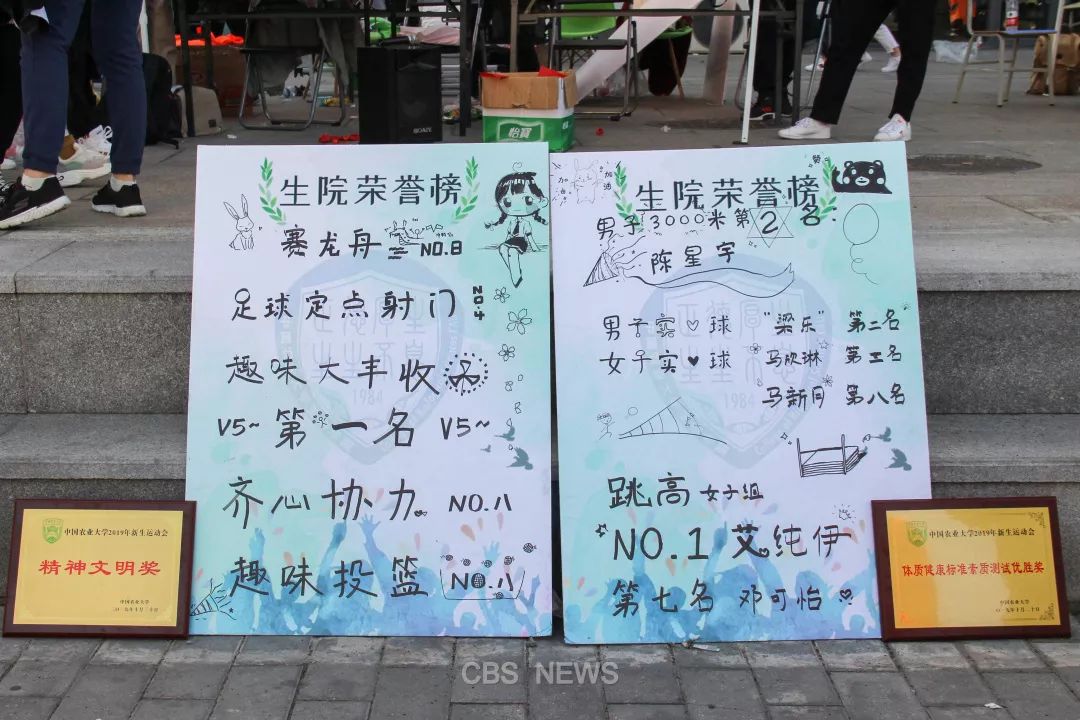 生院荣誉榜
赛龙舟 NO.8
足球定点射门 NO.4
趣味大丰收
V5~ 第一名 V5~
齐心协力 NO.八
趣味投篮 NO.八
加油 加油
赞
生院荣誉榜
男子3000米第2名:
陈星宇
男子实♡球 "梁乐" 第二名
女子实♥球 马欣琳 第三名
马新月 第八名
跳高 女子组
NO.1 艾纯伊
第七名 邓可怡
1984
1984
中国农业大学2019年新生运动会
精神文明奖
中国农业大学
二〇一九年十月二十日
中国农业大学2019年新生运动会
体质健康标准素质测试优胜奖
中国农业大学
二〇一九年十月二十日
怡宝
CBS NEWS